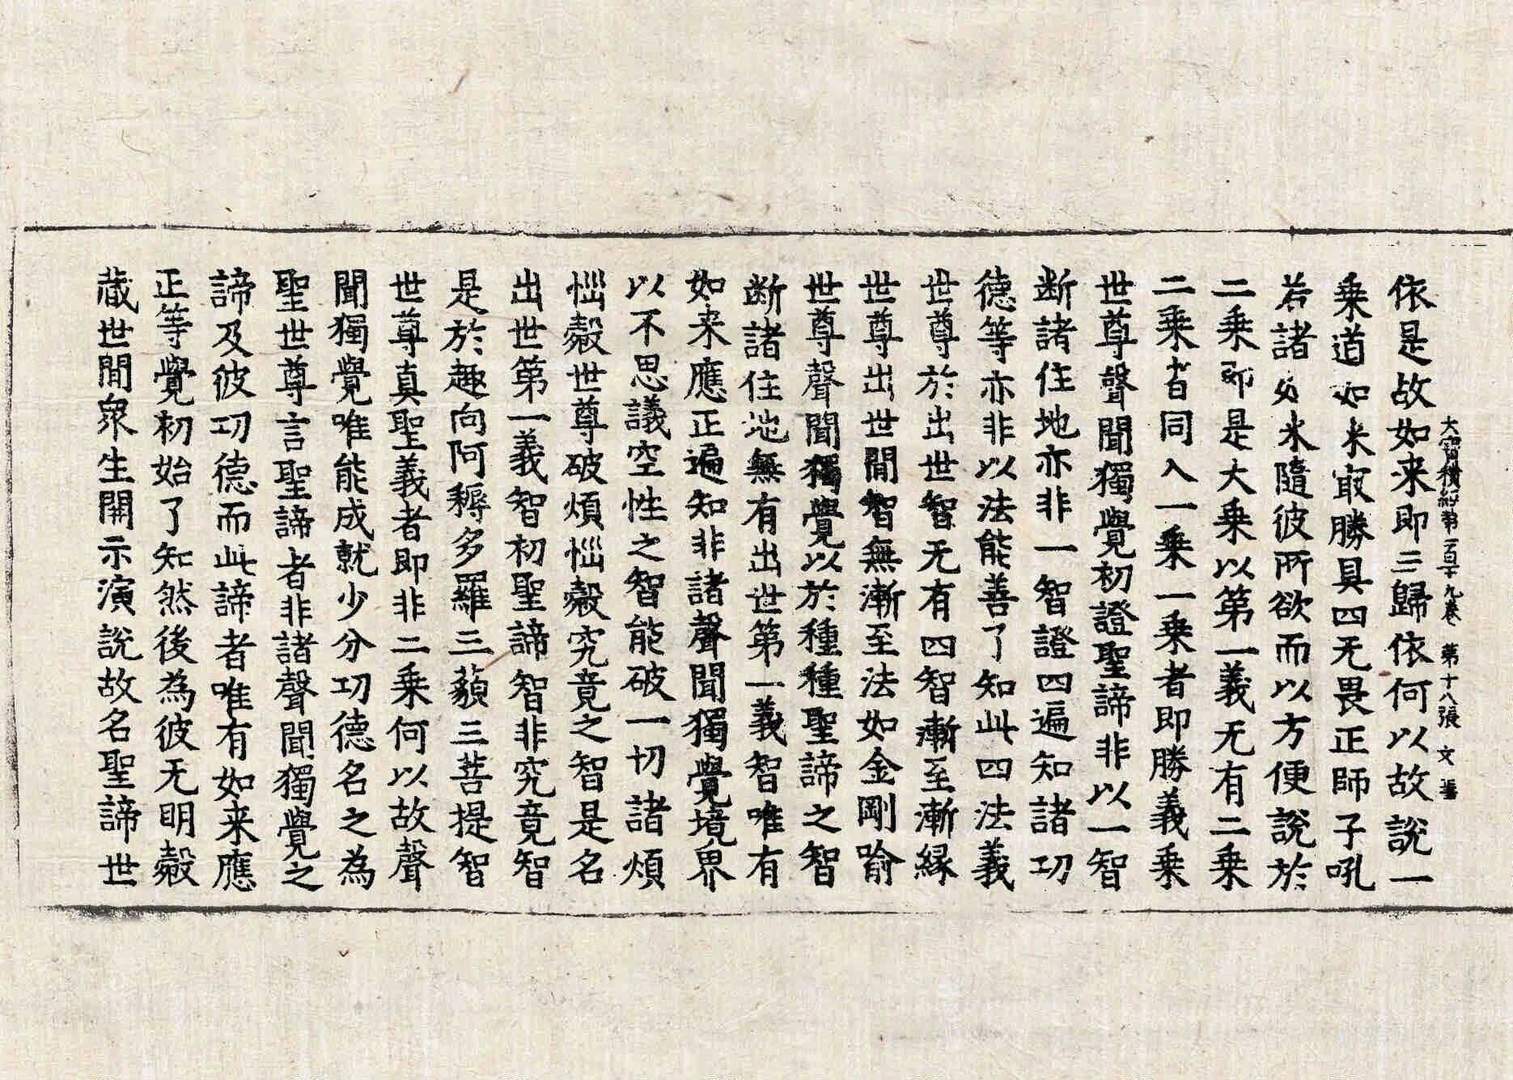 大寶積經第一百十九卷　第十八張　文
依是故如来即三歸依何以故說一
乗道如来㝡勝具四无畏正師子吼
若諸如来隨彼所欲而以方便說於
二乗即是大乗以第一義无有二乗
二乗者同入一乗一乗者即勝義乗
世尊聲聞獨覺初證聖諦非以一智
断諸住地亦非一智證四遍知諸功
德等亦非以法能善了知此四法義
世尊於出世智无有四智漸至漸縁
世尊出世間智無漸至法如金剛喻
世尊聲聞獨覺以於種種聖諦之智
断諸住地無有出世第一義智唯有
如来應正遍知非諸聲聞獨覺境界
以不思議空性之智能破一切諸煩
惱㲉世尊破煩惱㲉究竟之智是名
出世第一義智初聖諦智非究竟智
是於趣向阿耨多羅三藐三菩提智
世尊真聖義者即非二乗何以故聲
聞獨覺唯能成就少分功德名之為
聖世尊言聖諦者非諸聲聞獨覺之
諦及彼功德而此諦者唯有如来應
正等覺初始了知然後為彼无明㲉
蔵世間衆生開示演說故名聖諦世